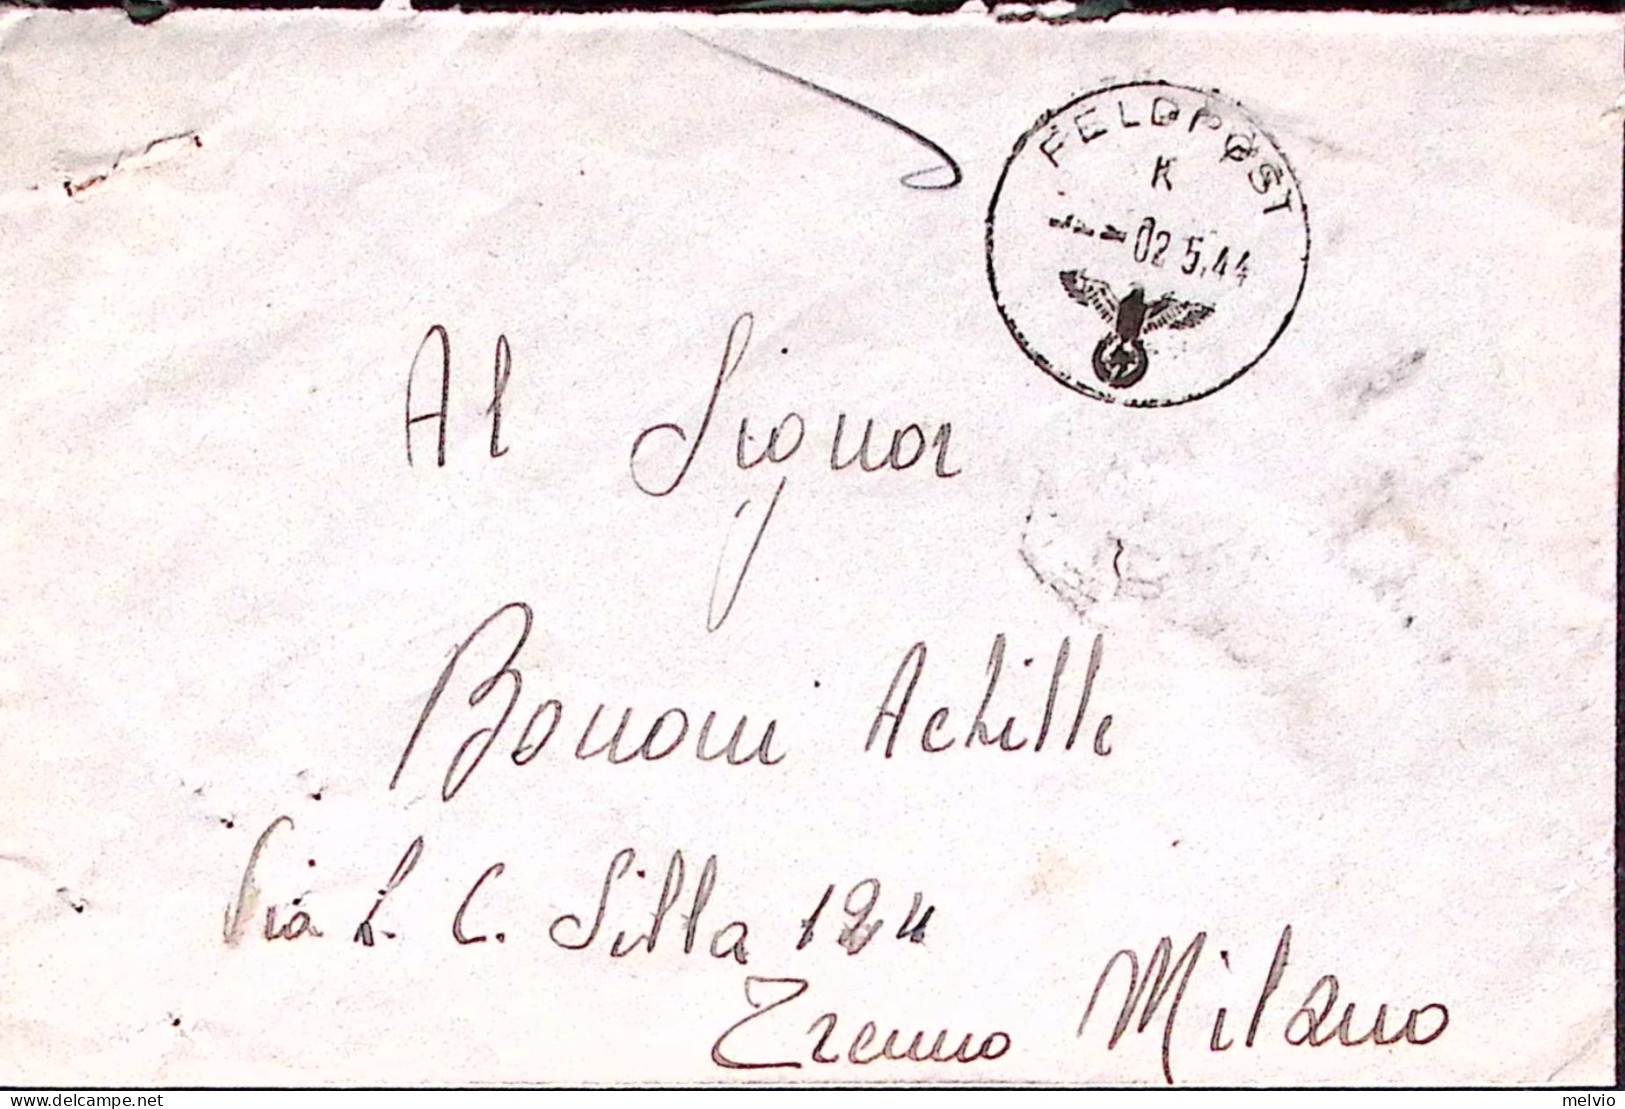 FELDPOST
K
---02.5.44
Al Signor
Bonomi Achille
Via L. C. Silla 124
Trenno Milano
©Delcampe.net
melvio